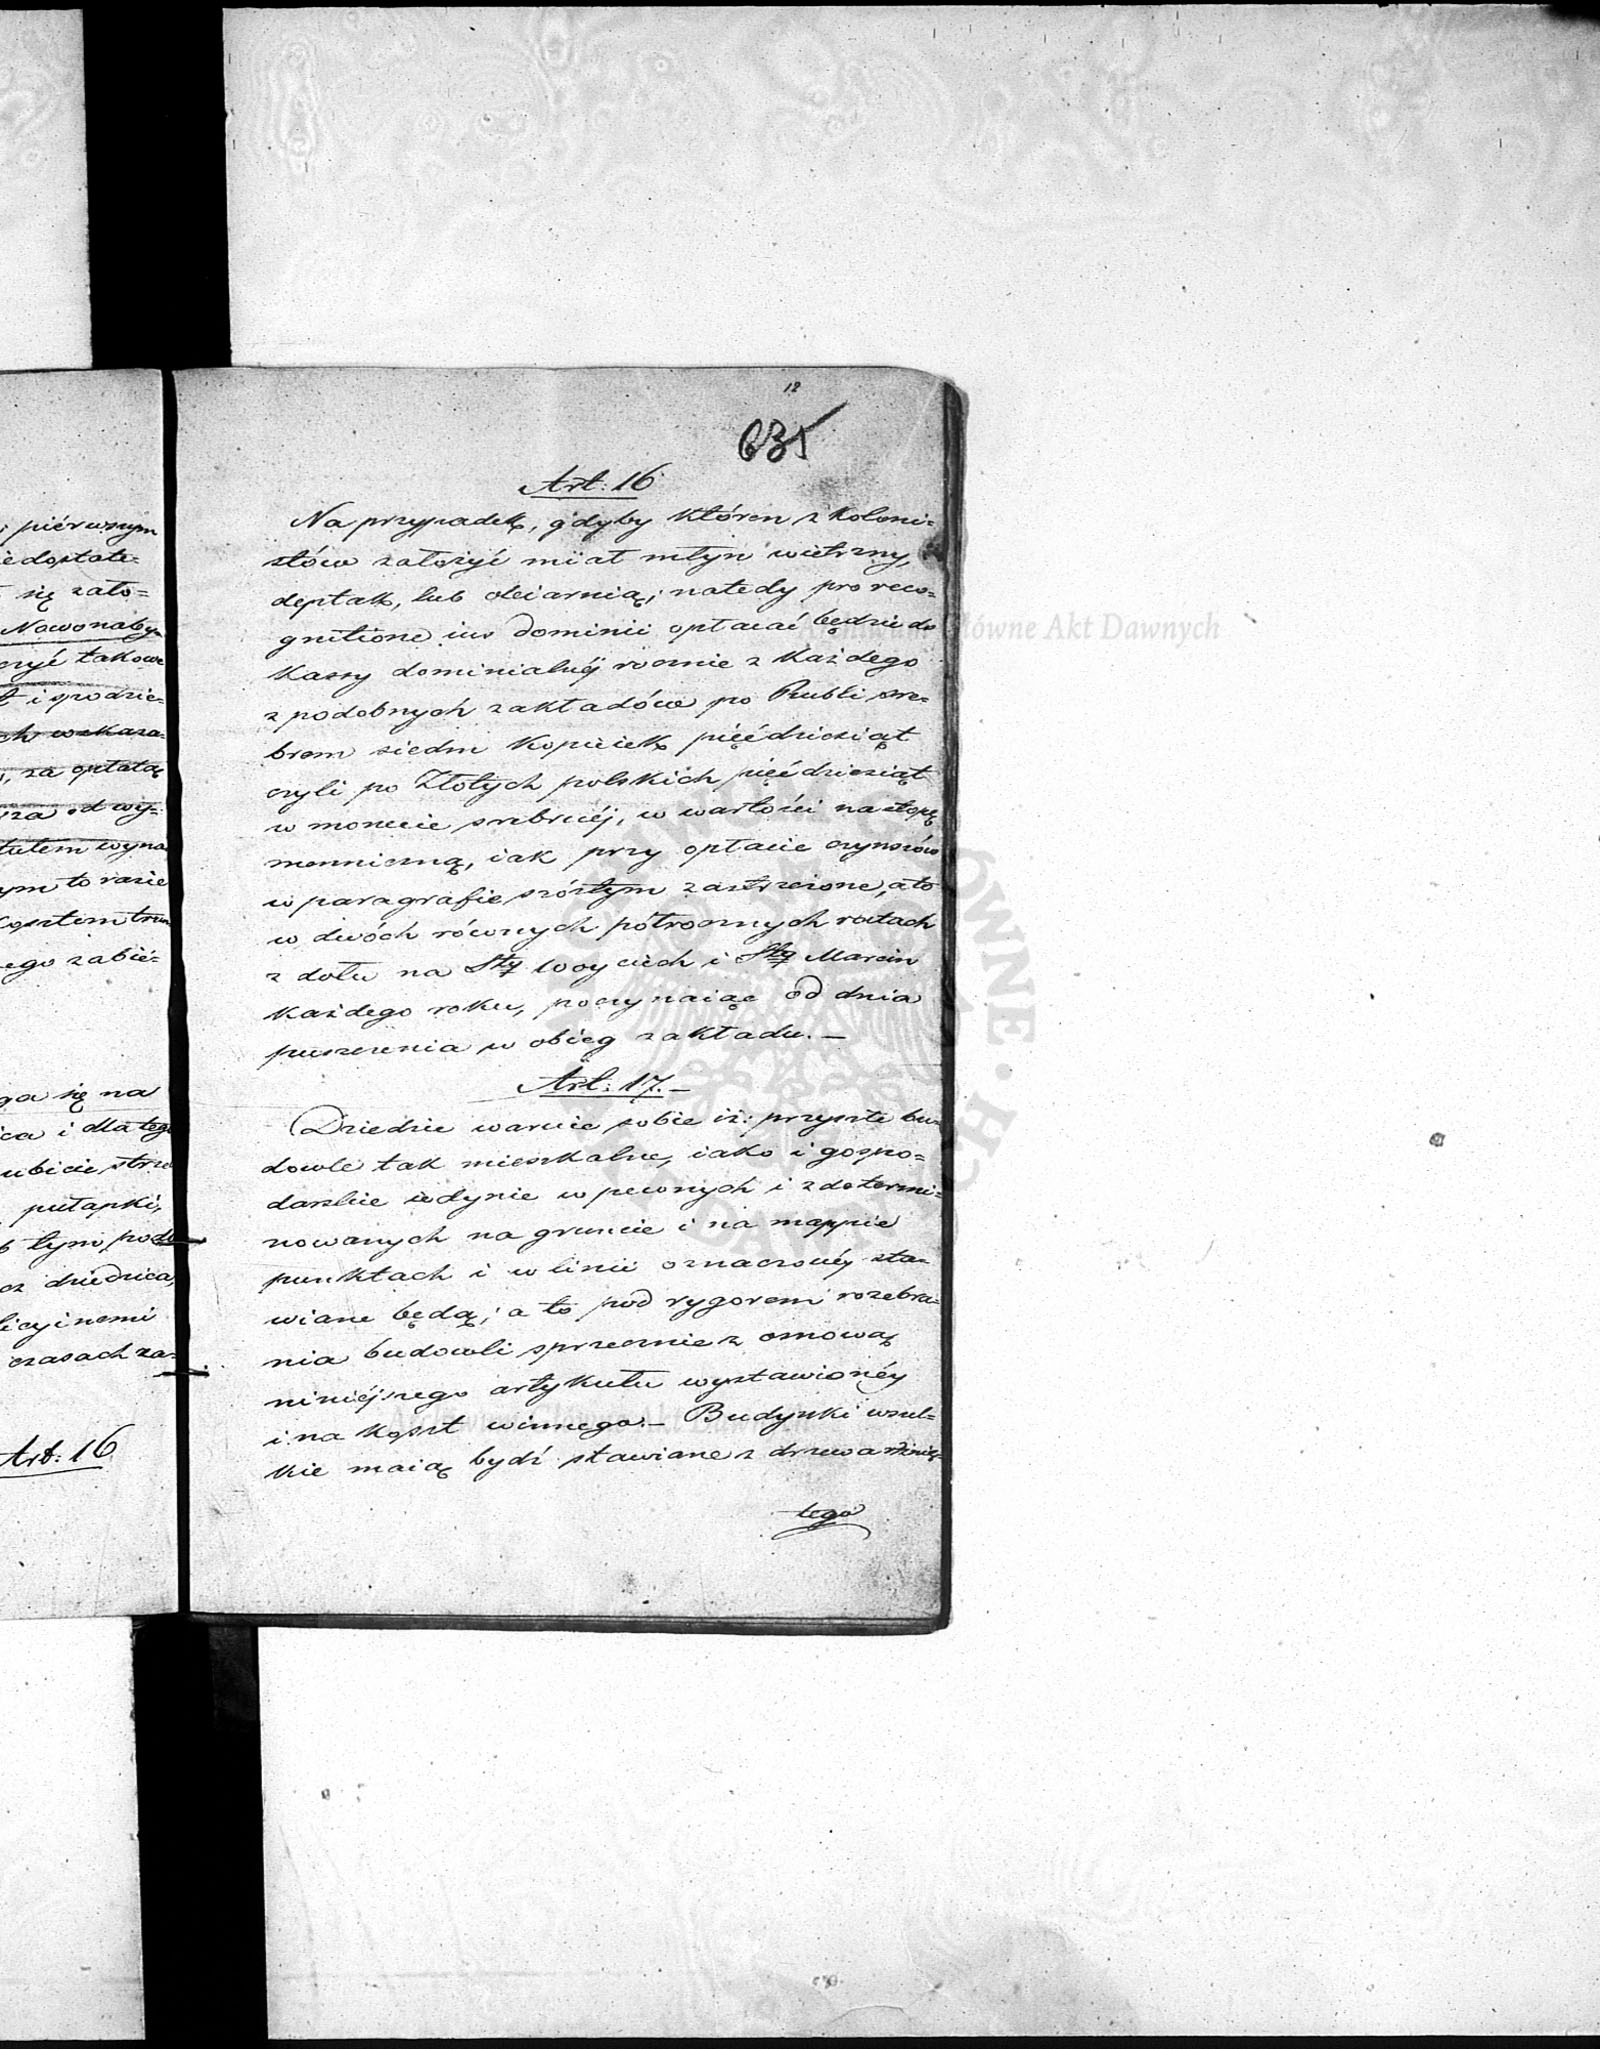 pierwszym
się zało=
Nowonaby=
takowe
i spodzie=
za opłatą
od wy=
tym to razie
kosztem
zabie=
się na
i dla tego
ubicie
pułapki,
tym
dziedzica,
czasach za=
Art: 16
12
635
Art: 16
Na przypadek, gdyby któren z koloni=
stów założyć miał młyn wietrzny,
deptak, lub oleiarnią; natedy pro reco=
gnitione ius Dominii opłacać będzie do
kassy dominialnéj rocznie z każdego
z podobnych zakładów po Rubli sre=
brem siedm kopieiek pięćdziesiąt
czyli po Złotych polskich pięćdziesiąt
w monecie srebrnéj, w wartości na stopę
menniczną, iak przy opłacie czynszów
w paragrafie szóstym zastrzeżone, a to
w dwóch równych półrocznych ratach
z dołu na Sty Woyciech i Sty Marcin
każdego roku, poczynaiąc od dnia
puszczenia w obieg zakładu. —
Art: 17. —
Dziedzic waruie sobie iż: przyszłe bu=
dowle tak mieszkalne, iako i gospo=
darskie iedynie w pewnych i zdetermi=
nowanych na gruncie i na mappie
punktach i w linii oznaczonéy sta=
wiane będą; a to pod rygorem rozebra=
nia budowli sprzecznie z osnową
niniéjszego artykułu wystawionéy
i na koszt winnego. — Budynki wszel=
kie maią bydź stawiane z drzewa
tego
Archiwum Główne Akt Dawnych